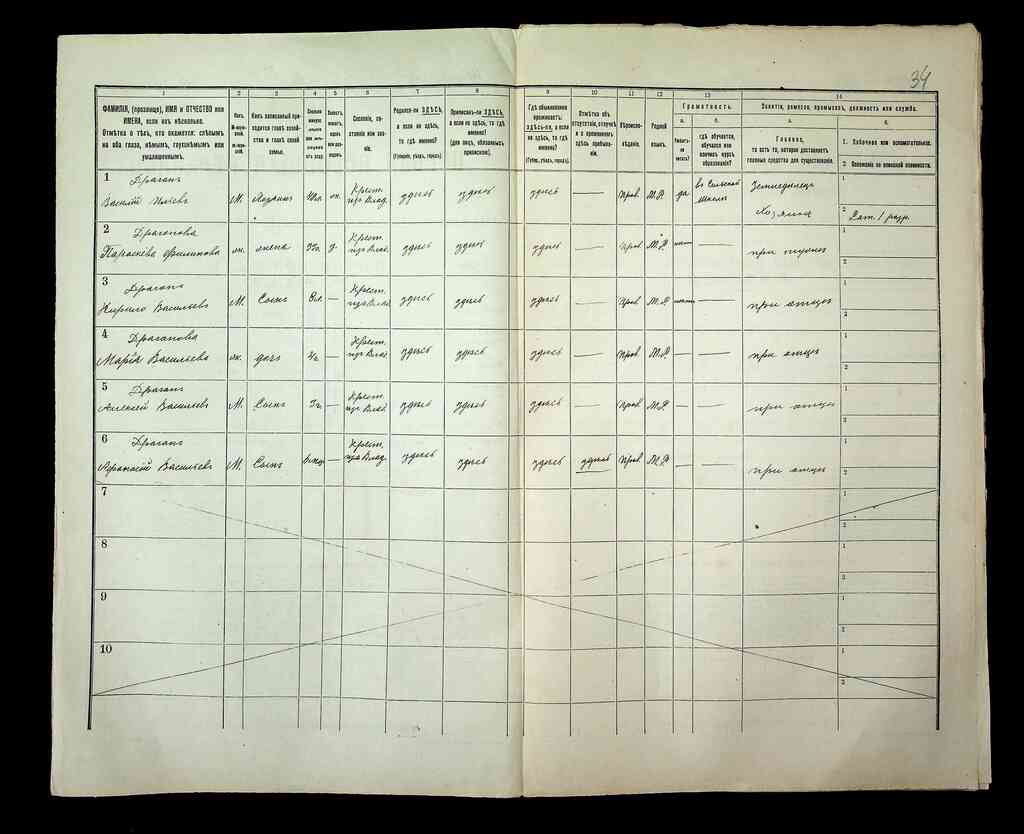 34
1 2 3 4 5 6 7 8 9 10 11 12 13 14
ФАМИЛІЯ, (прозвище), ИМЯ и ОТЧЕСТВО или
ИМЕНА, если ихъ нѣсколько.
Отмѣтка о тѣхъ, кто окажется: слѣпымъ
на оба глаза, нѣмымъ, глухонѣмымъ или
умалишеннымъ.
Полъ.
Какъ записанный приходится главѣ хозяйства и главѣ своей семьи.
Сословіе, состояніе или званіе.
Родился-ли ЗДѢСЬ,
а если не здѣсь,
то гдѣ именно?
(Губернія, уѣздъ, городъ).
Приписанъ-ли ЗДѢСЬ,
а если не здѣсь, то гдѣ
именно?
(для лицъ, обязанныхъ
припискою).
Гдѣ обыкновенно
проживаетъ:
здѣсь-ли, а если
не здѣсь, то гдѣ
именно?
(Губерн., уѣздъ, городъ).
Отмѣтка объ
отсутствіи, отлучкѣ
и о временномъ
здѣсь пребываніи.
Вѣроисповѣданіе.
Родной
языкъ.
Грамотность.
а. б.
Умѣетъ-ли
читать?
гдѣ обучается,
обучался или
кончилъ курсъ
образованія?
Занятіе, ремесло, промыселъ, должность или служба.
а. б.
Главное,
то есть то, которое доставляетъ
главныя средства для существованія.
1. Побочное или вспомогательное.
2. Положеніе по воинской повинности.
1 Драганъ
Василій Ильевъ М. Хозяинъ Крест. изъ Влад. здѣсь здѣсь здѣсь — Прав. М.Р. да въ Сельской Школѣ Земледѣлецъ Хозяинъ
1
2 Рат. 1 разр.
2 Драганова
Параскева Филипова жена Крест. изъ Влад. здѣсь здѣсь здѣсь — Прав. М.Р. нѣтъ —
1
2
3 Драганъ
Кирило Васильевъ М. Сынъ — Крест. изъ Влад. здѣсь здѣсь здѣсь — Прав. М.Р. нѣтъ — при отцѣ
1
2
4 Драганова
Марія Васильева дочь — Крест. изъ Влад. здѣсь здѣсь здѣсь — Прав. М.Р. — — при отцѣ
1
2
5 Драганъ
Алексѣй Васильевъ М. Сынъ — Крест. изъ Влад. здѣсь здѣсь здѣсь — Прав. М.Р. — — при отцѣ
1
2
6 Драганъ
Афанасій Васильевъ М. Сынъ — Крест. изъ Влад. здѣсь здѣсь здѣсь здѣсь Прав. М.Р. — — при отцѣ
1
2
7 1
2
8 1
2
9 1
2
10 1
2